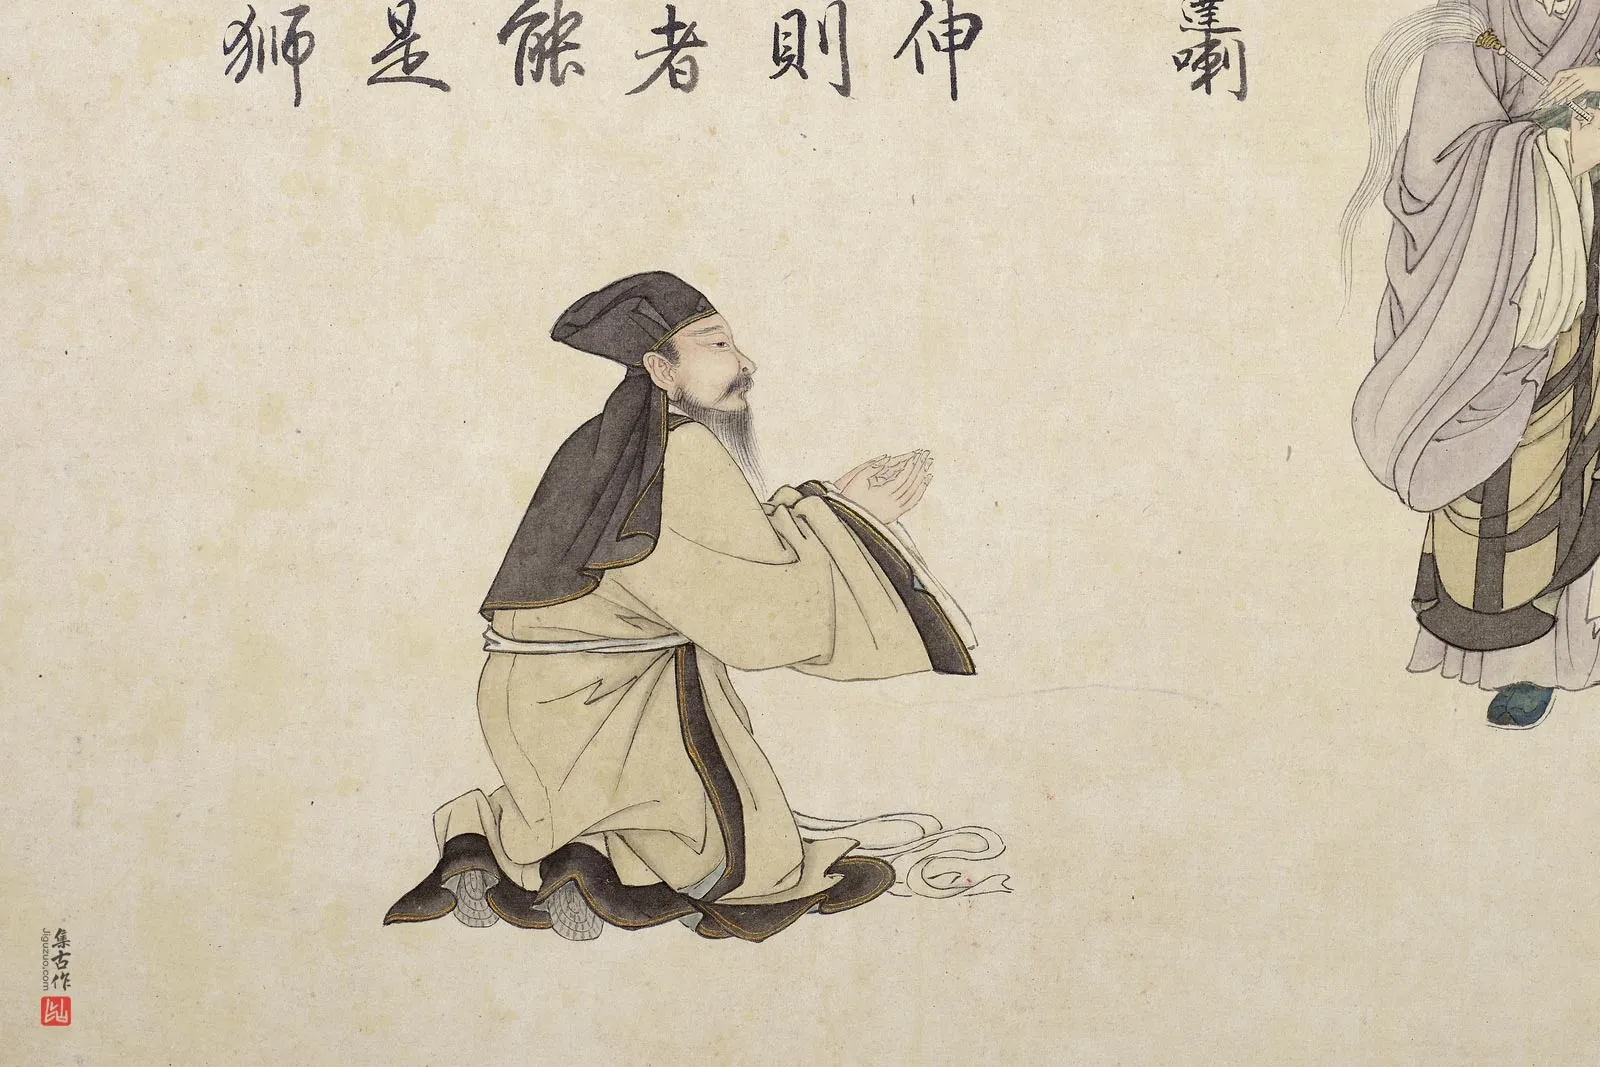 達喇
伸
則
者
能
是
獅
集古作
jiguzuo.com